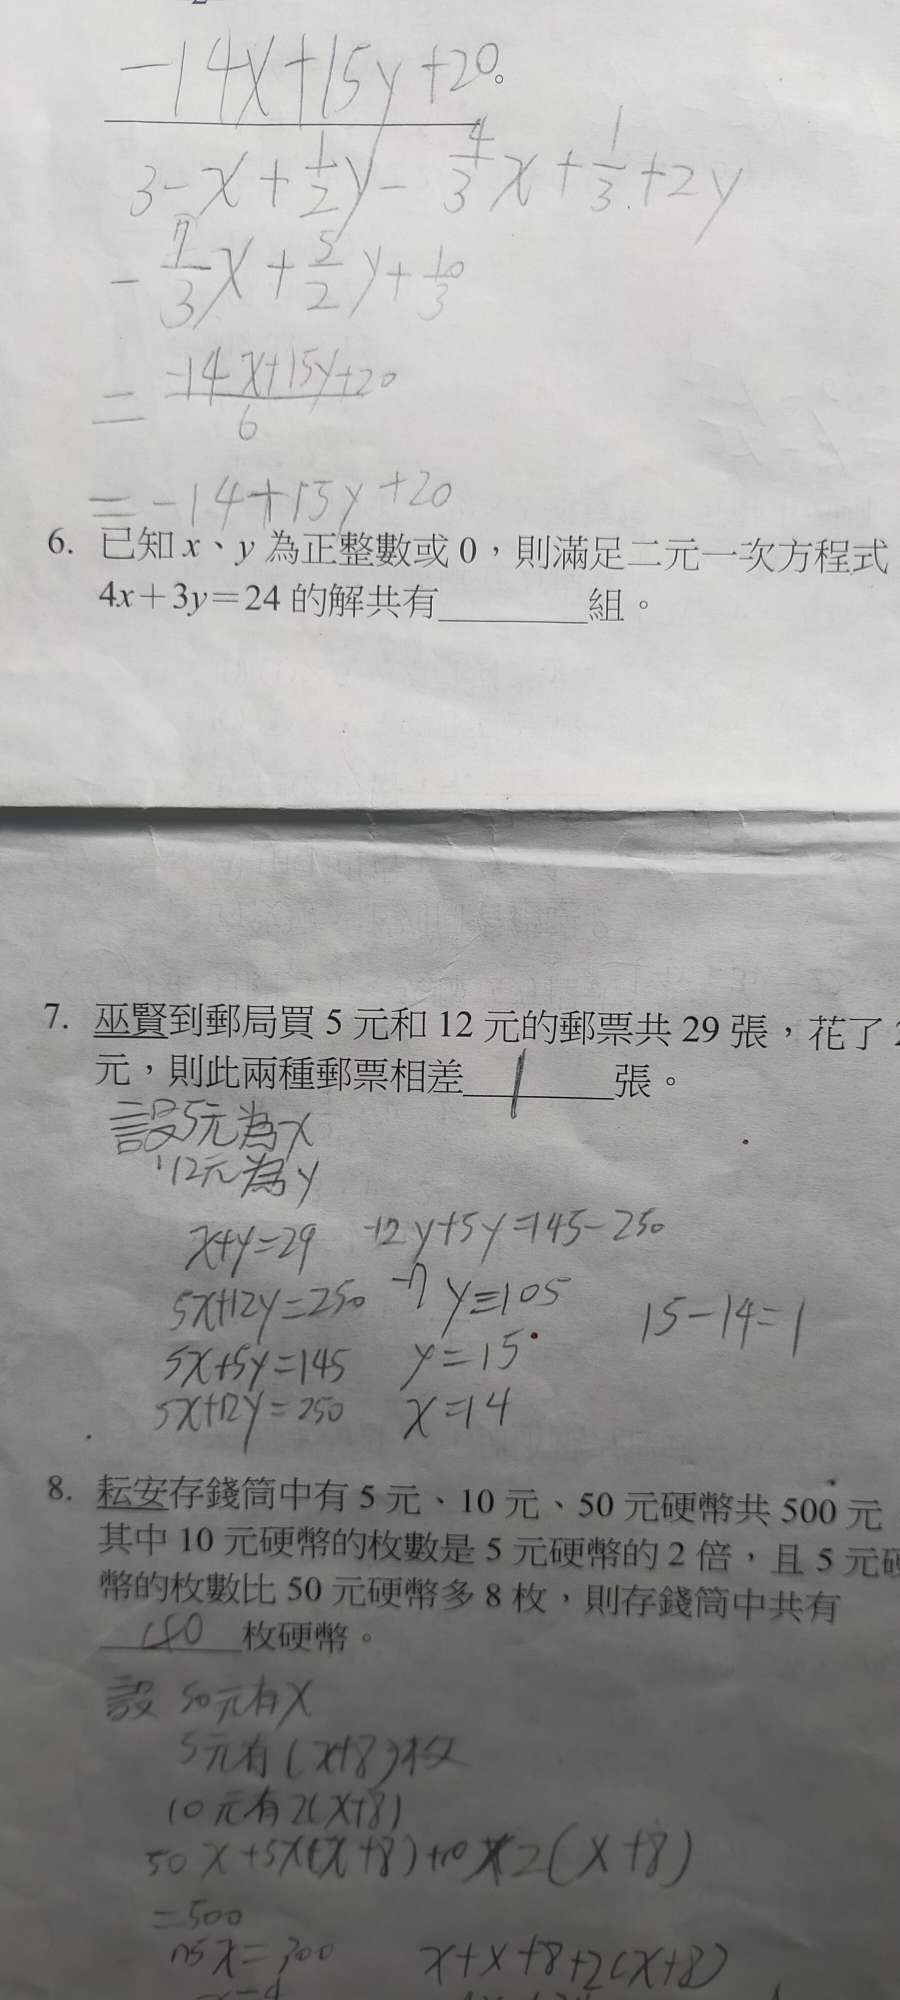 -14x+15y+20。
3-x+1/2y-4/3x+1/3+2y
-7/3x+5/2y+10/3
=-14x+15y+20/6
=-14+15y+20
6. 已知x、y為正整數或0,則滿足二元一次方程式
4x+3y=24的解共有______組。
7. 巫賢到郵局買5元和12元的郵票共29張,花了
元,則此兩種郵票相差 1 張。
設5元為x
12元為y
x+y=29 -12y+5y=145-250
5x+12y=250 -7y=105 15-14=1
5x+5y=145 y=15
5x+12y=250 x=14
8. 耘安存錢筒中有5元、10元、50元硬幣共500元
其中10元硬幣的枚數是5元硬幣的2倍,且5元硬
幣的枚數比50元硬幣多8枚,則存錢筒中共有
枚硬幣。
設 50元有x
5元有(x+8)枚
10元有2(x+8)
50x+5x(x+8)+10x2(x+8)
=500
75x=300 x+x+8+2(x+8)